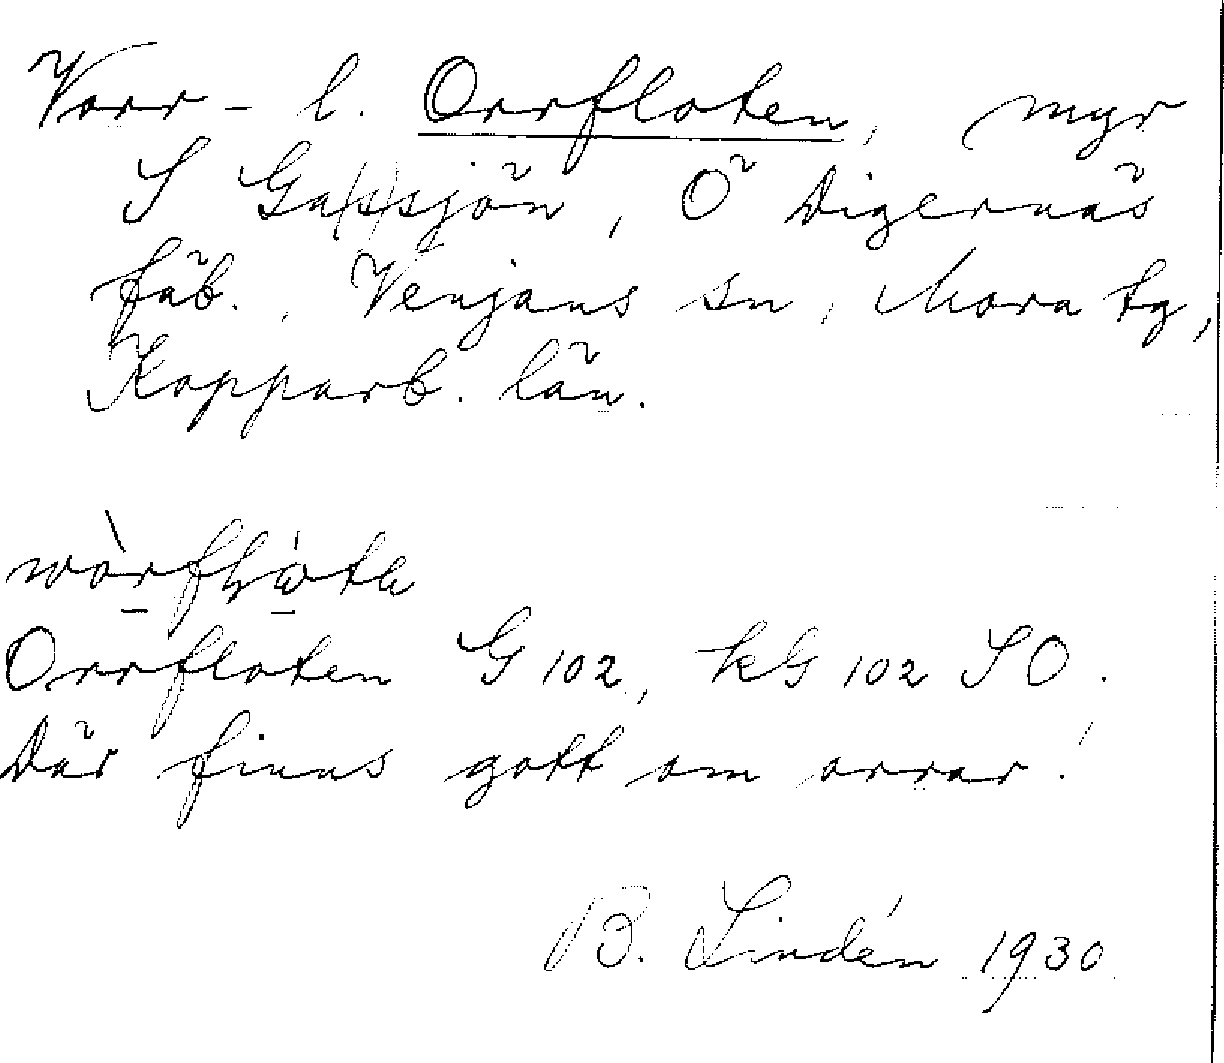 Vorr- l. Orrfloten, myr
S Ga(s)sjön, Ö Digernäs
fäb., Venjans sn, Mora tg,
Kopparb. län.
Orrfloten G 102, kG 102 SO.
Där finns gott om orrar!
B. Lindén 1930